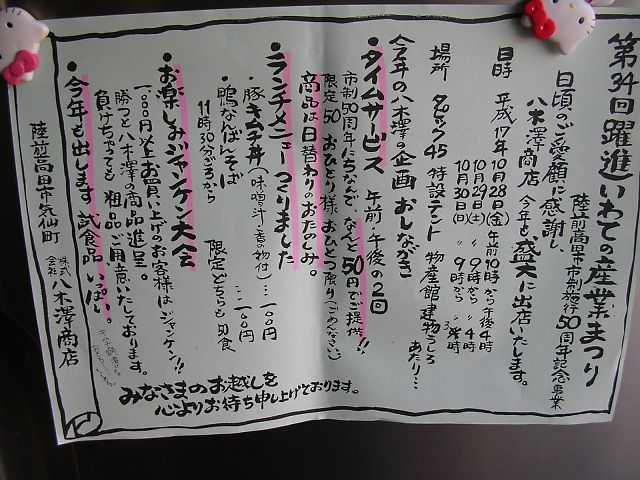 第34回躍進いわての産業まつり
陸前高田市市制施行50周年記念事業
日頃のご愛顧に感謝し、
八木澤商店 今年も盛大に出店いたします。
日時 平成17年10月28日(金)午前10時から午後4時
10月29日(土) 〃 9時から 〃 4時
10月30日(日) 〃 9時から 〃 時
場所 タロック45 特設テント 物産館建物うしろあたり…
今年の八木澤の企画 おしながき
・タイムサービス 午前・午後の2回
市制50周年にちなんで、なんと50円でご提供!!
限定50 おひとり様おひとつ限り(ごめんなさい)
商品は日替わりのおたのしみ。
・ランチメニューつくりました
・豚キムチ丼(味噌汁・香の物付)…100円
・鴨なんばんそば …100円
11時30分ごろから 限定どちらも 食
・お楽しみジャンケン大会
1,000円以上お買い上げのお客様はジャンケン!!
勝つと八木澤の商品進呈。
負けちゃっても粗品ご用意いたしております。
・今年も出します 試食品いっぱい。
陸前高田市気仙町 株式会社 八木澤商店
みなさまのお越しを
心よりお待ち申し上げております。